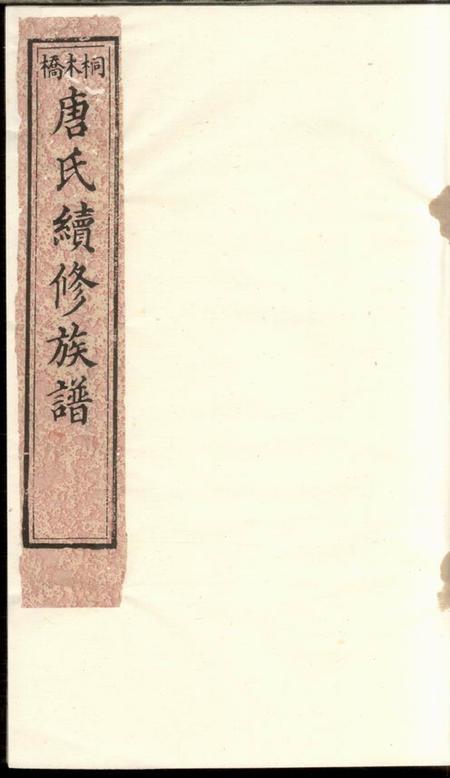 桐木橋
唐氏續修族譜